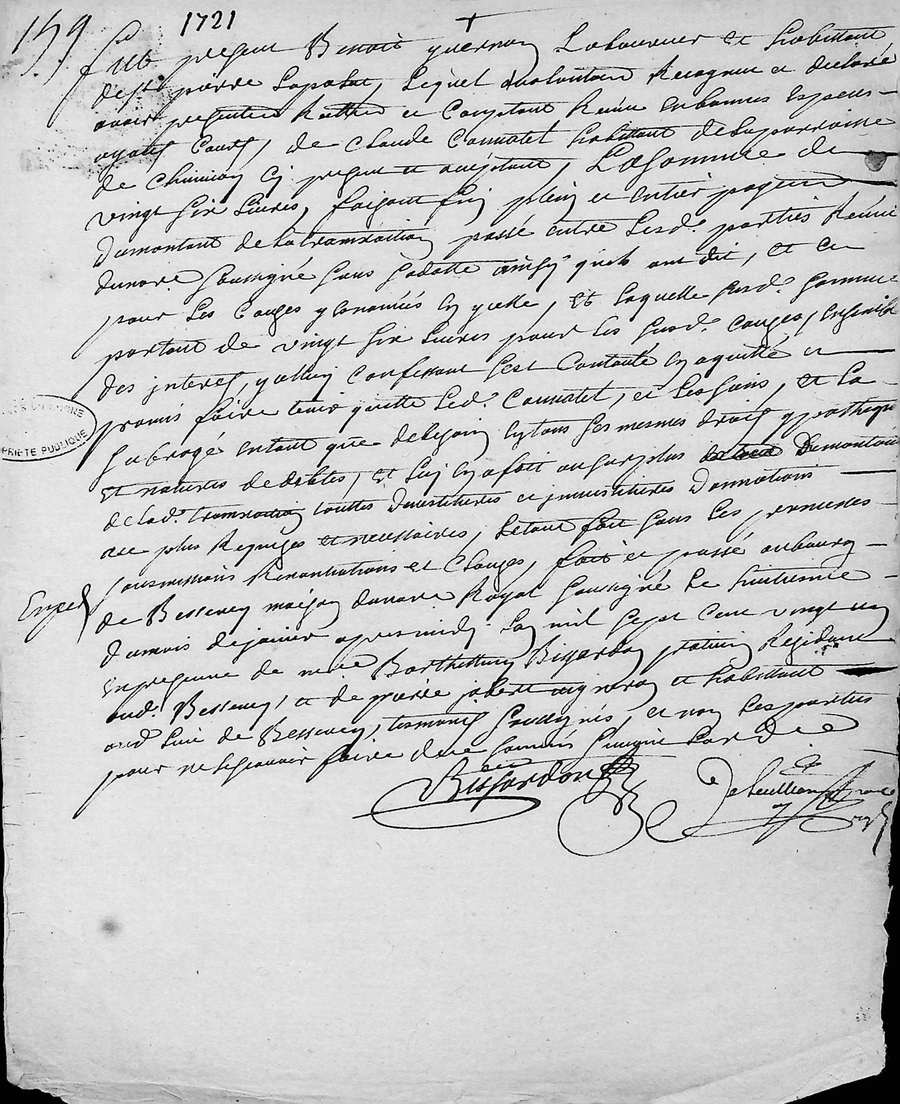 159 1721
Fut present Benoist guernon Laboureur et habitant
de st pierre Lapalud, Lequel volontaire Recognu et declaré
avoir presentement et Comptant Receu en bonnes Especes
ayant Cours, de Claude Connatel habitant de la parroisse
de Chivinay cy present et acceptant, La Somme de
vingt six Livres, faisant fin plein et entier payement
du montant de la transaction passé entre Lesd. parties Receue
du nore soussigné sans sa datte ainsy qu'ils ont dit, et ce
pour Les Causes y enoncées en icelle, Et de laquelle susd. somme
portant de vingt six Livres pour les susd. causes, ensemble
des interests, guernon confessant s'est Contenté en a quitté et
promis faire tenir quitte Led. Connatel, et Les siens, et La
subrogé entant que de besoin en tous ses mesmes droits ypotheques
et natures de debtes, et Luy en a fait au surplus du montant
de Lad. transaction touttes d'usitteres et investitteres Donnations
aux plus Requises et necessaires, Le tout fait sous Les promesses
soumissions Renontiations et Clauses, fait et passé au bourg
Exped
de Bessenay maison du nore Royal soussigné Le huitieme
du mois de janvier apres midy L'an mil sept cent vingt un
en presence de mre Barthellemy Bissardon praticien Residant
aud. Bessenay, et de pierre jobert vigneron et habitant
aud. Lieu de Bessenay, tesmoins soussignés, et non Les parties
pour ne sçavoir faire de ce sommés suivant L'ord.ce
Bissardon
ARCHIVES DU RHONE
PROPRIETE PUBLIQUE